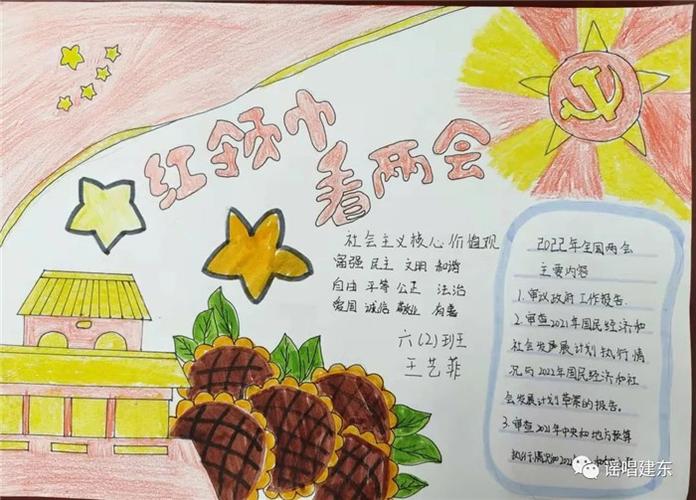 红领巾
看两会
社会主义核心价值观
富强 民主 文明 和谐
自由 平等 公正 法治
爱国 诚信 敬业 友善
六(2)班
王艺菲
2022年全国两会
主要内容
1.审议政府工作报告.
2.审查2021年国民经济和
社会发声展计划执行情
况与2022年国民经济和社
会发展计划草案的报告。
3.审查2021年中央和地方预算
执行情况
谣唱建东